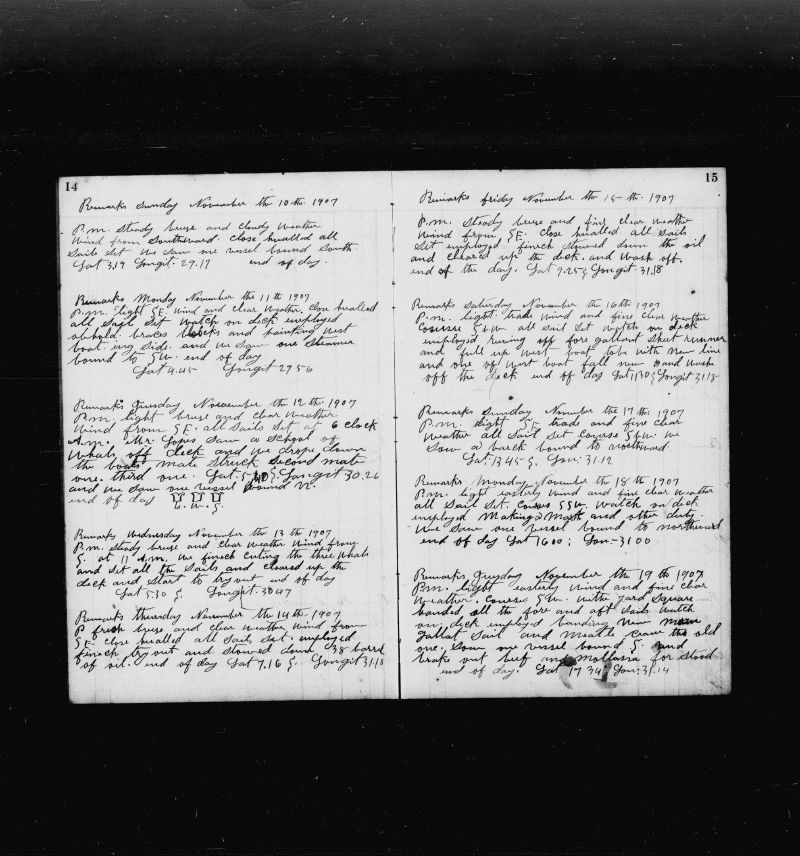 14
Remarks Sunday November the 10th 1907
P.m. Steady breese and cloudy Weather
Wind from Southward. close hualled all
Sails Set We Saw one vessel bound South
Lat 3.19 Longit. 29.17 end of day.
Remarks Monday November the 11th 1907
P.m. light SE. Wind and clear Weather. close hualled
all Sail Set Watch on deck employed
braces blocks and painting West
boat. ing Side. and we Saw one Steamer
bound to SW. end of day
Lat 4.45 Longit 29 56
Remarks Tuesday November the 12th 1907
P.m. light breese and clear Weather
Wind from SE. all Sails Set at 6 clock
A.m. Mr. Lopes Saw a School of
Whals off deck and we drope down
the boats mate Struck Second mate
one. third one. Lat. S. Longit 30.26
and we Saw one vessel bound N.
end of day
L. W. S.
Remarks Wednesday November the 13th 1907
P.m. Steady breese and clear Weather Wind from
S. at 11 A.m. we finsch cuting the three Whals
and Set all the Sails and cleared up the
deck and Start to try out end of day
Lat 5.30 S Longit. 30 47
Remarks thursday November the 14th 1907
P fresh breese and clear Weather Wind from
SE close hualled all Sails Set. employed
finsch try out and Stowed down 38 barrel
of oil. end of day Lat 7.16 S. Longit 31.10
15
Remarks friday November the 15th 1907
P.m. Steady breese and fine clear Weather
Wind from SE. close hualled all Sails
Set employed finsch Stowed down the oil
and cleard up the deck. and Wash off.
end of the day. Lat 9.25 S Longit 31.18
Remarks Saturday November the 16th 1907
P.m. light trade Wind and fine clear Weather
Course SbW. all Sail Set Watch on deck
employed runing off fore gallant Sheet runner
and full up West boat tobs with New line
and one of West boat fall new and Wash
off the deck end of day Lat 11 30 S Longit 31.18
Remarks Sunday November the 17th 1907
P.m. light SE trade and fine clear
Weather all Sail Set Course SbW. we
Saw a barck bound to northward.
Lat. 13 45 S. Lon: 31.12
Remarks Monday November the 18th 1907
P.m. light easterly Wind and fine clear Weather
all Sail Set. Courses SSW. Watch on deck
employed Making and other duty.
We Saw one vessel bound to northward
end of day Lat 16 00; Lon: 31 00
Remarks Tuesday November the 19th 1907
P.m. light easterly Wind and fine clar
Weather. Course SW. With yard Square
banded all the fore and aft Sails Watch
on deck employed banding new Main
Gallat Sail and the old
one. Saw one vessel bound S. and
brake out beef Mollassa for Stood
end of day. Lat 17 34 Lon: 31.14